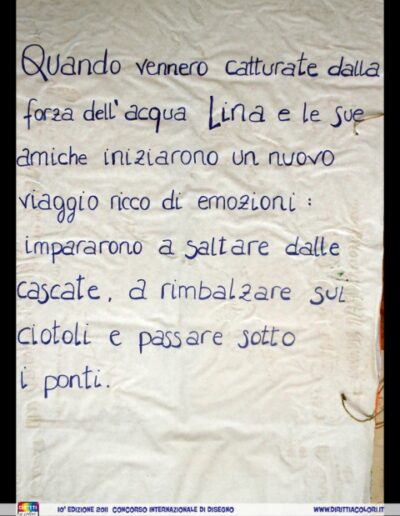 Quando vennero catturate dalla
forza dell'acqua Lina e le sue
amiche iniziarono un nuovo
viaggio ricco di emozioni :
impararono a saltare dalle
cascate, a rimbalzare sui
ciotoli e passare sotto
i ponti.
10ª EDIZIONE 2011 CONCORSO INTERNAZIONALE DI DISEGNO WWW.DIRITTIACOLORI.IT